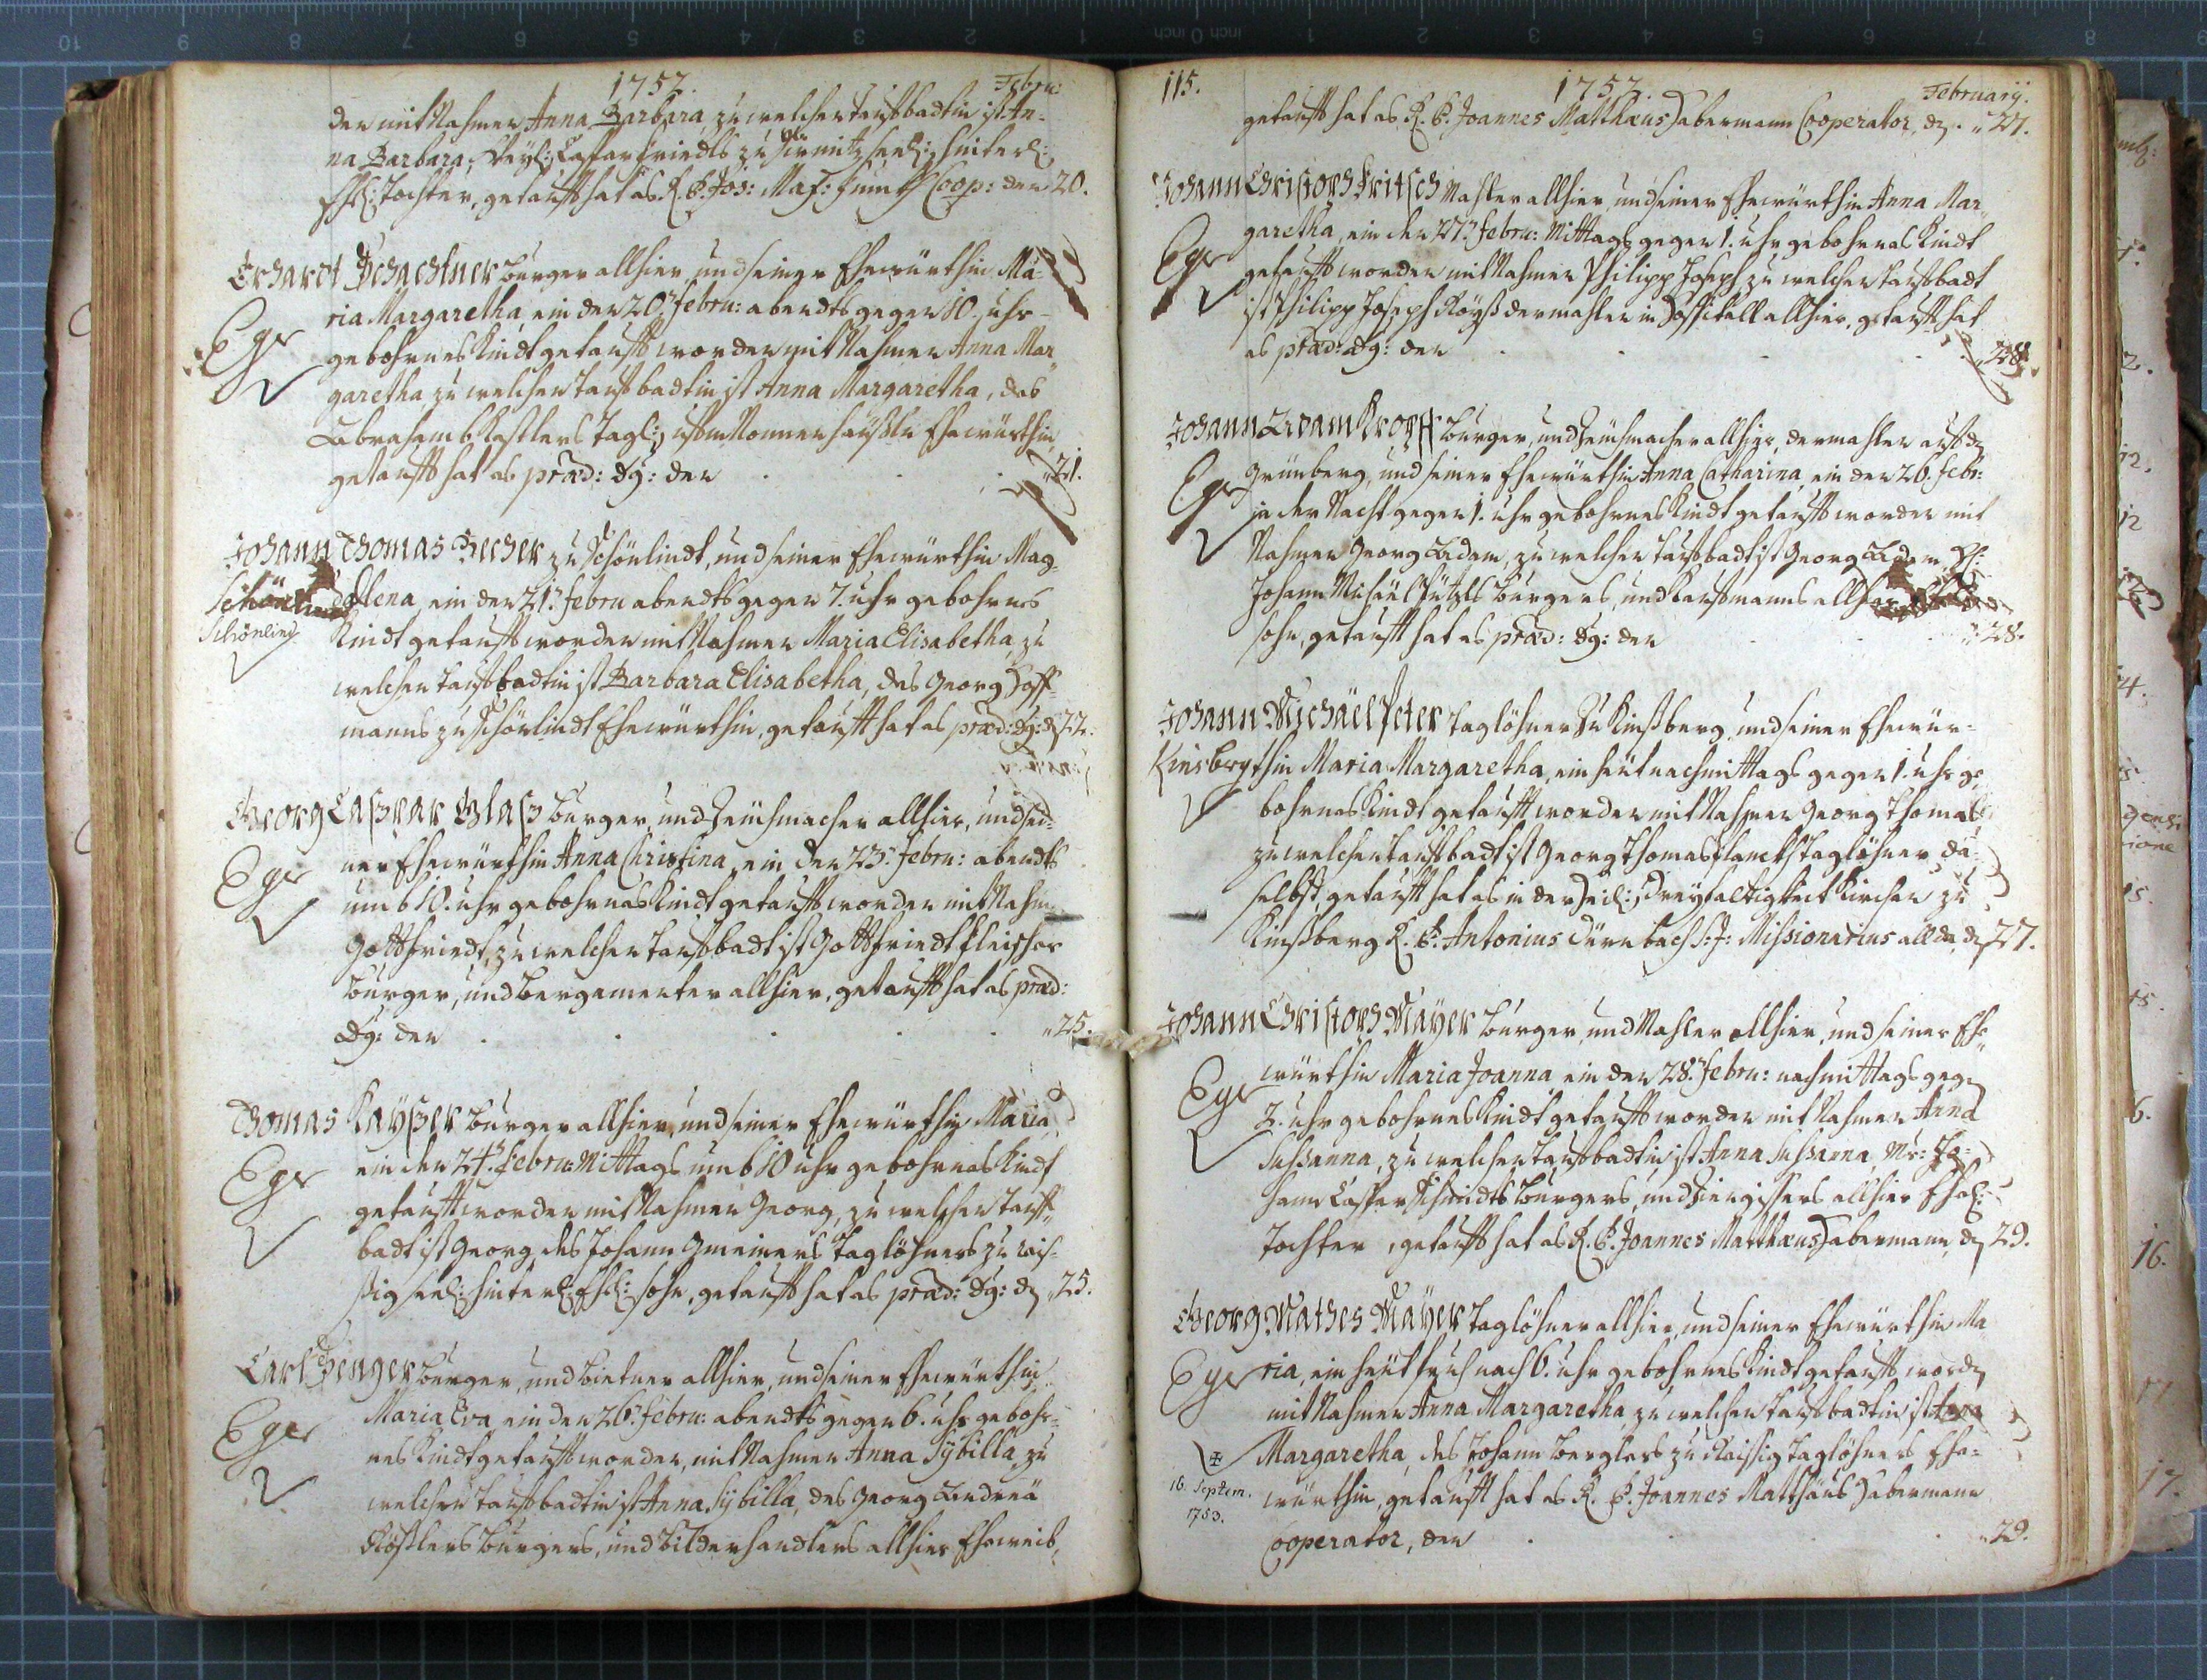 1752. Febru:
den mit Nahmen Anna Barbara, zu welcher tauffbadtin ist An-
na Barbara, Weyl: Caspar Friedls zu seel: hinterl:
Ehl: Tochter, getaufft hat es R. P. Jos: Coop: den 20.
Erhardt Schachtner Burger allhier und seiner Ehewürthin Ma-
ria Margaretha, ein den 20. Febru: abendts gegen 10. uhr
Eger
gebohrnes Kindt getaufft worden mit Nahmen Anna Mar
garetha zu welcher tauffbadtin ist Anna Margaretha, des
Abrahamb Tagl: Ehewürthin
getaufft hat es præd: den 21.
Johann Thomas Becher zu Schönlindt, und seiner Ehewürthin Mag-
dalena, ein den 21. Febru abendts gegen 7. uhr gebohrnes
Schönling
Kindt getaufft worden mit Nahmen Maria Elisabetha, zu
welcher tauffbadtin ist Barbara Elisabetha, des Georg Hoff-
manns zu Schönlindt Ehewürthin, getaufft hat es præd: 22.
Georg Caspar Glaß Burger, und Zeuchmacher allhier, und sei-
ner Ehewürthin Anna Christina, ein den 23. Febru: abendts
Eger
umb 10. uhr gebohrnes Kindt getaufft worden mit Nahm:
Gottfriedt, zu welcher tauffbadt ist Gottfriedt Fleischer
Burger, und Bergamenter allhier, getaufft hat es præd:
den 25.
Thomas Kayßer Burger allhier, und seiner Ehewürthin Maria
ein den 24. Febru: Mittags umb 10 uhr gebohrnes Kindt
Eger
getaufft worden mit Nahmen Georg, zu welcher tauff-
badt ist Georg des Johann Gmeiners Taglöhners zu rei-
ßig seel: hinterl: Ehl: sohn, getaufft hat es præd: 25.
Carl Burger, und allhier, und seiner Ehewürthin
Maria Eva, ein den 26. Febru: abendts gegen 6. uhr gebohr-
Eger
nes Kindt getaufft worden, mit Nahmen Anna Sybilla, zu
welcher tauffbadtin ist Anna Sybilla, des Georg Andreä
Rößlers Burgers, und Bilderhandlers allhier Eheweib,
115. 1752. February.
getaufft hat es R. P. Joannes Matthæus Habermann Cooperator, 27.
Johann Christoph Fritsch Mahler allhier, und seiner Ehewürthin Anna Mar
garetha, ein den 27. Febru: Mittags gegen 1. uhr gebohrnes Kindt
Eger
getaufft worden mit Nahmen Philipp Joseph, zu welcher tauffbadt
ist Philipp Joseph dermahlen in Hospitall allhier, getaufft hat
es præd: den 28.
Johann Adam Kropff Burger, und Zeuchmacher allhier, dermahlen auff
Grünberg, und seiner Ehewürthin Anna Catharina, ein den 26. Febr:
Eger
in der Nacht gegen 1. uhr gebohrnes Kindt getaufft worden mit
Nahmen Georg Adam, zu welcher tauffbadt ist Georg Adam,
Johann Michael Burgers, und Kauffmanns allhier
sohn, getaufft hat es præd: den 28.
Johann Michäel Peter Taglöhner zu Kinßberg, und seiner Ehewür-
Kinsberg
thin Maria Margaretha, ein heut nachmittags gegen 1. uhr ge
bohrnes Kindt getaufft worden mit Nahmen Georg Thomas
zu welcher tauffbadt ist Georg Thomas Planckh Taglöhner da-
selbst, getaufft hat es in der Heil: Dreyfaltigkeit Kirchen zu
Kinßberg R. P. Antonius Dürnbach S: J: Missionarius allda, 27.
Johann Christoph Mayer Burger, und Mahler allhier, und seiner Ehe
würthin Maria Joanna ein den 28. Febru: nachmittags gegen
Eger
2. uhr gebohrnes Kindt getaufft worden mit Nahmen Anna
Sussanna, zu welcher tauffbadtin ist Anna Sussanna, Mr: Jo-
hann Caspar Schmidts Burgers, und Ziengiessers allhier Ehel:
Tochter, getaufft hat es R. P. Joannes Matthæus Habermann, 29.
Georg Mathes Mayer Taglöhner allhier, und seiner Ehewürthin Ma
Eger
ria, ein heut fruh nach 6. uhr gebohrnes Kindt getaufft worden
mit Nahmen Anna Margaretha zu welcher tauffbadtin ist Anna
Margaretha, des Johann Berglers zu Raissig Taglöhners Ehe-
16. Septem.
1753.
würthin, getaufft hat es R. P. Joannes Matthäus Habermann
Cooperator, den 29.